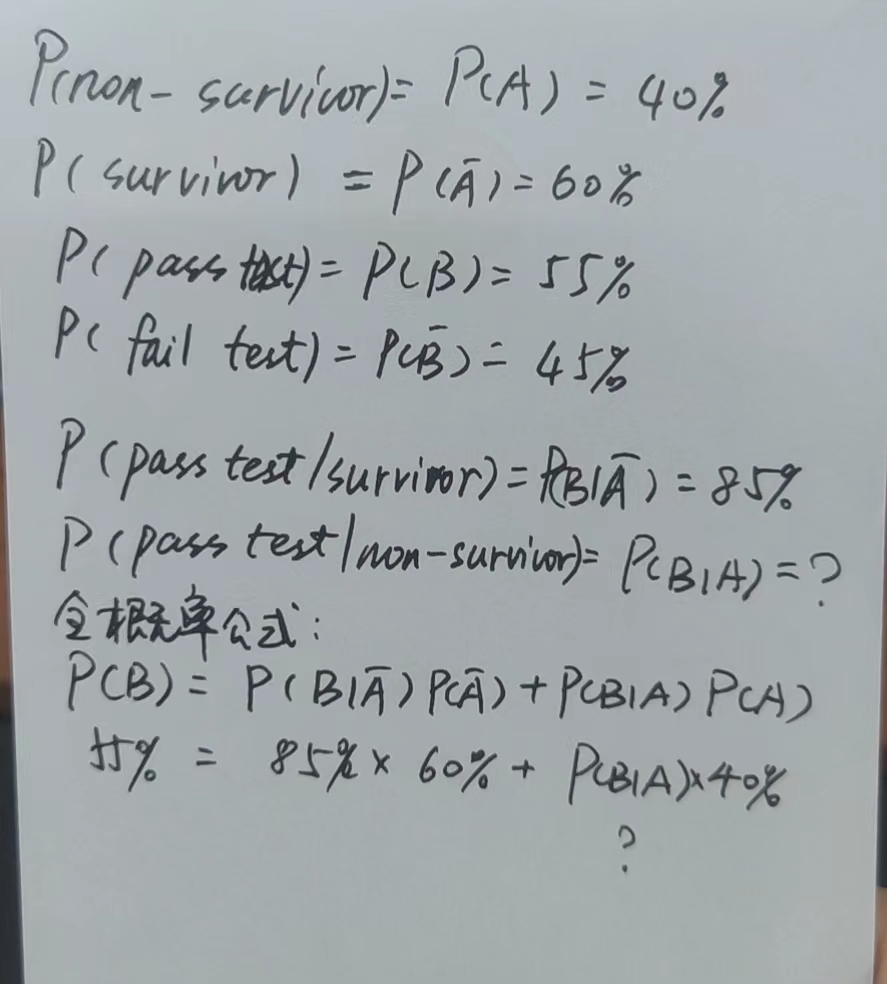 P(non-survivor)= P(A) = 40%
P(survivor) = P(Ā)=60%
P(pass test)= P(B)= 55%
P(fail test)= P(B̄)= 45%
P(pass test/survivor)=P(B|Ā)=85%
P(pass test/non-survivor)= P(B|A)=?
全概率公式:
P(B)= P(B|Ā)P(Ā)+P(B|A)P(A)
55% = 85%×60%+P(B|A)×40%
?